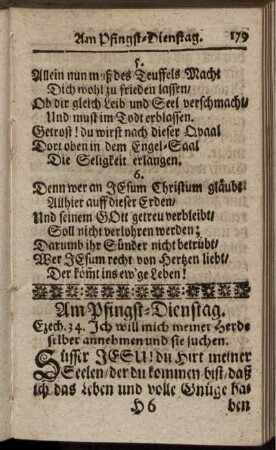 Am Pfingst-Dienstag. 179
5.
Allein nun muß des Teuffels Macht
Dich wohl zu frieden lassen/
Ob dir gleich Leib und Seel verschmacht/
Und must im Todt erblassen.
Getrost! du wirst nach dieser Qvaal
Dort oben in dem Engel-Saal
Die Seligkeit erlangen.
6.
Denn wer an JEsum Christum gläubt
Allhier auff dieser Erden/
Und seinem GOtt getreu verbleibt/
Soll nicht verlohren werden;
Darumb ihr Sünder nicht betrübt/
Wer JEsum recht von Hertzen liebt/
Der kom̃t ins ew'ge Leben!
Am Pfingst-Dienstag.
Ezech. 34. Ich will mich meiner Herde
selber annehmen und sie suchen.
Süsser JESU! du Hirt meiner
Seelen/ der du kommen bist/ daß
ich das Leben und volle Gnüge ha-
H6 ben